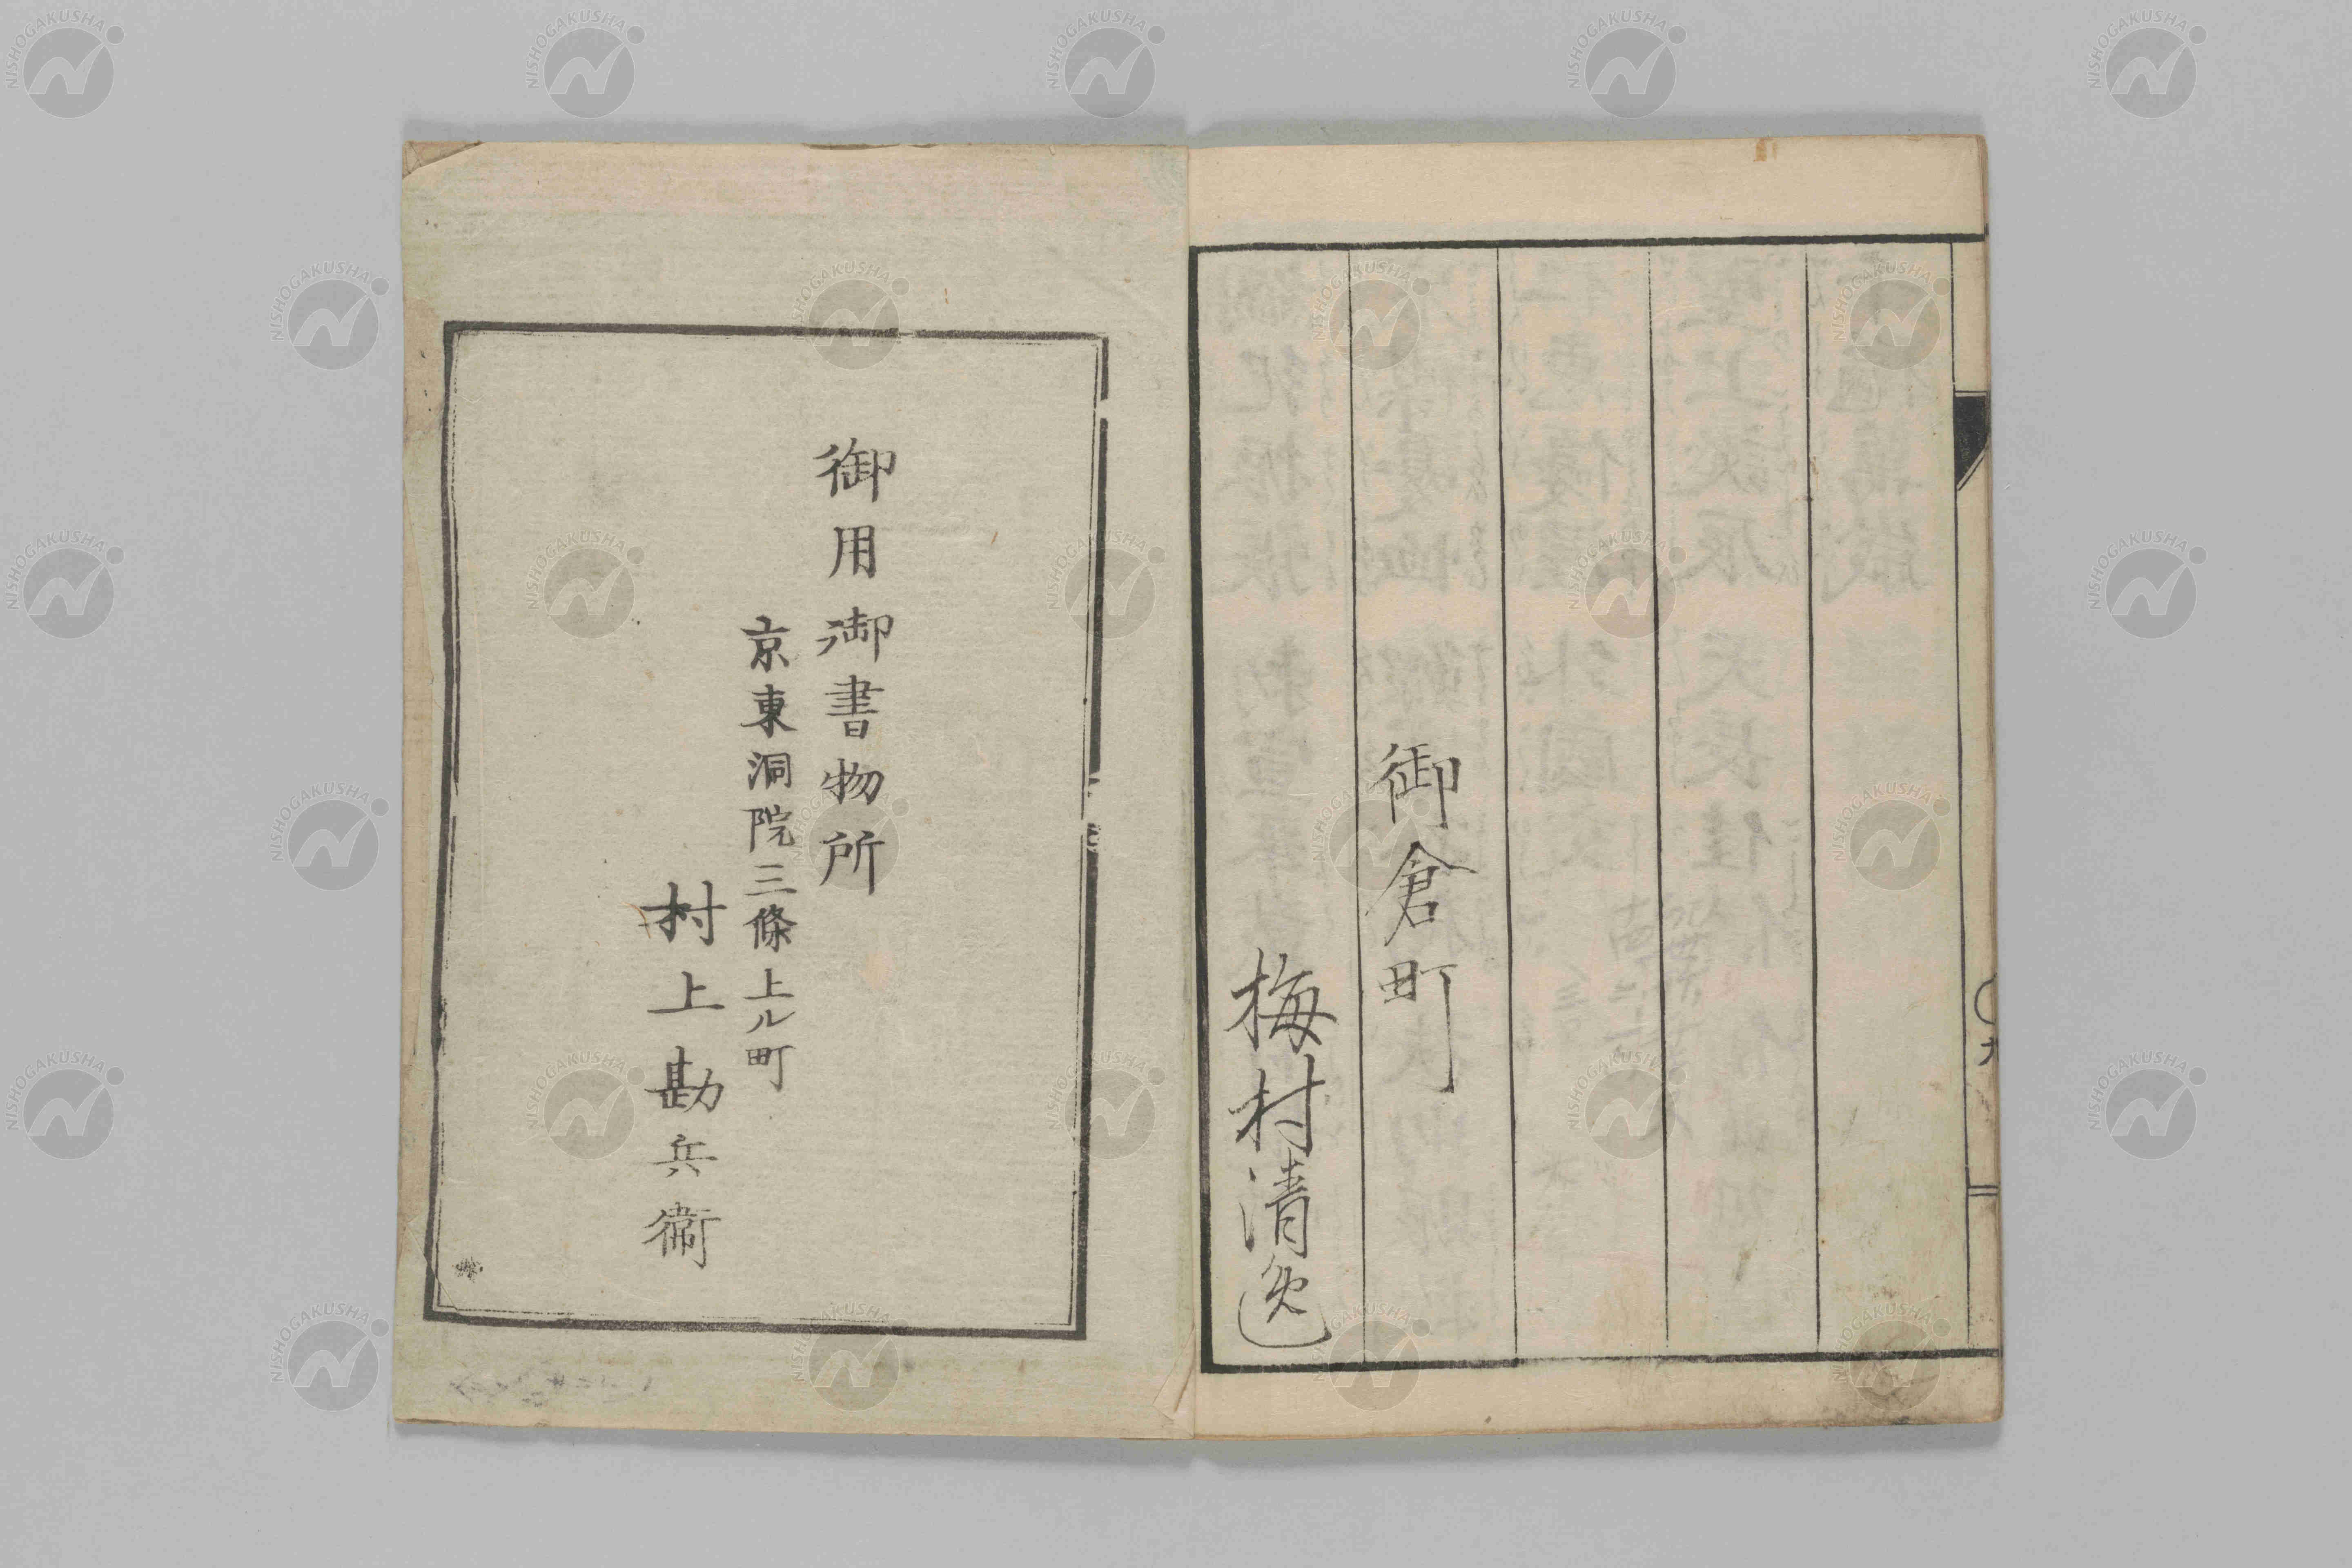 御倉町
梅村清逸
御用御書物所
京東洞院三條上ル町
村上勘兵衛
NISHOGAKUSHA